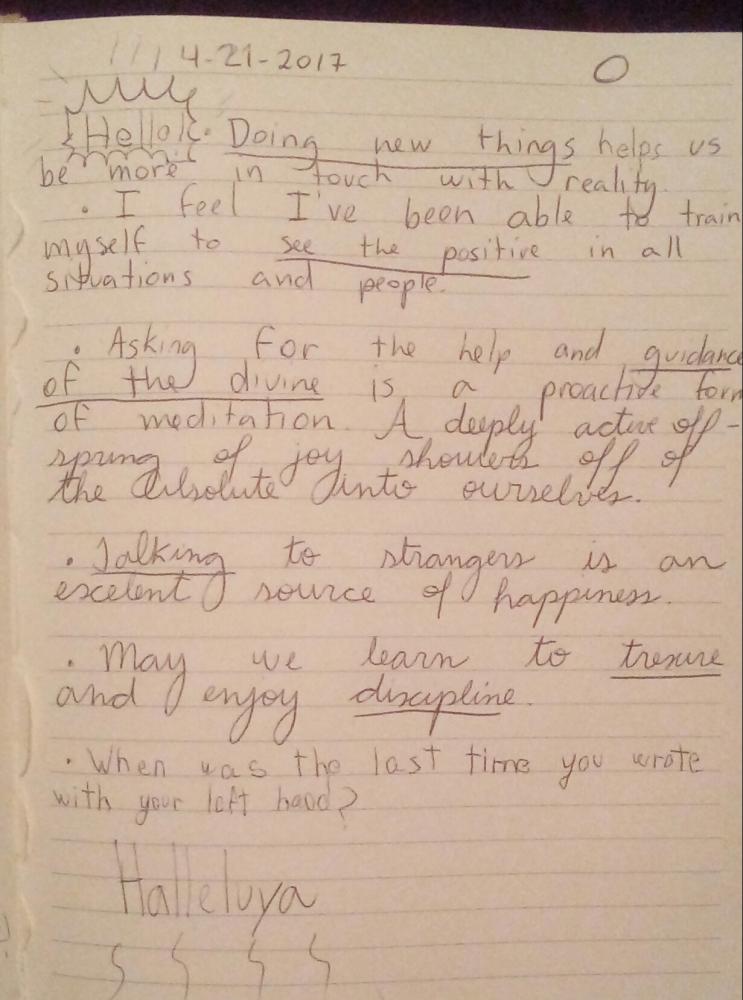 4-21-2017
Hello!. Doing new things helps us
be more in touch with reality.
· I feel I've been able to train
myself to see the positive in all
situations and people.
· Asking for the help and guidance
of the divine is a proactive form
of meditation. A deeply active off-
spring of joy showers off of
the Absolute into ourselves.
· Talking to strangers is an
excelent source of happiness.
· May we learn to tresure
and enjoy discipline.
· When was the last time you wrote
with your left hand?
Halleluya